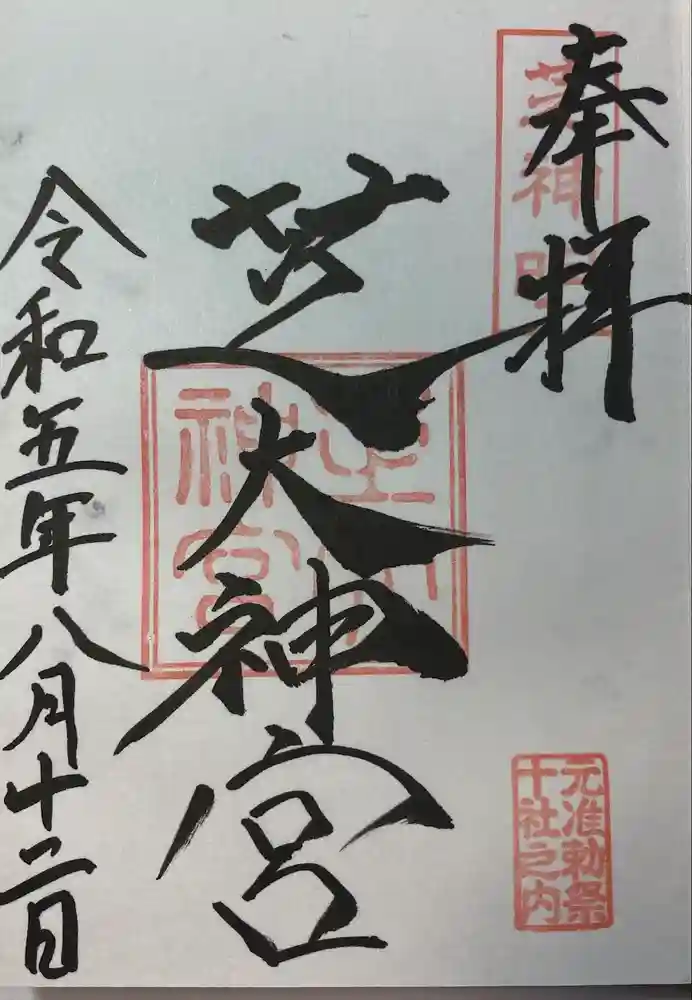 奉拝
芝神明
芝大神宮
神宮
令和五年八月十二日
元准勅祭
十社之内